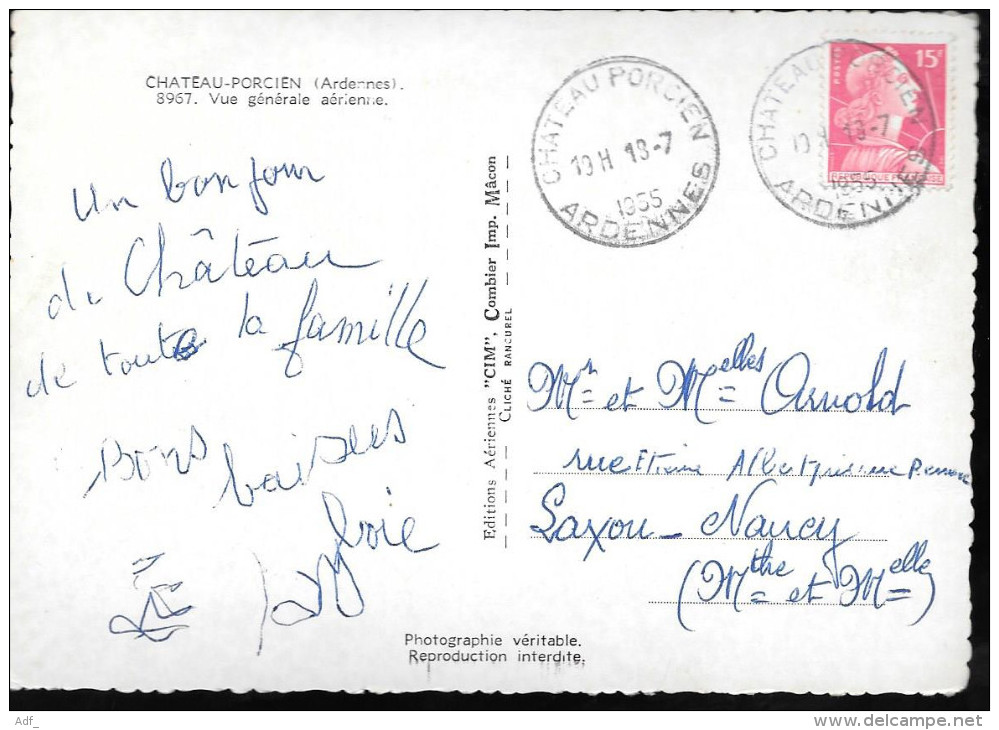 CHATEAU-PORCIEN (Ardennes).
8967. Vue générale aérienne.
Un bonjour
du Château
de toute la famille
Bons baisers
Editions Aériennes "CIM", Combier Imp. Mâcon
CLICHÉ RANCUREL
CHATEAU PORCIEN
19H 18-7
1955
ARDENNES
CHATEAU PORCIEN
19H 18-7
1955
ARDENNES
POSTES 15F
REPUBLIQUE FRANÇAISE
Mr et Melles Arnold
rue Etienne Albert
Laxou - Nancy
(Mthe et Melle)
Photographie véritable.
Reproduction interdite.
Adf_
delcampe.net